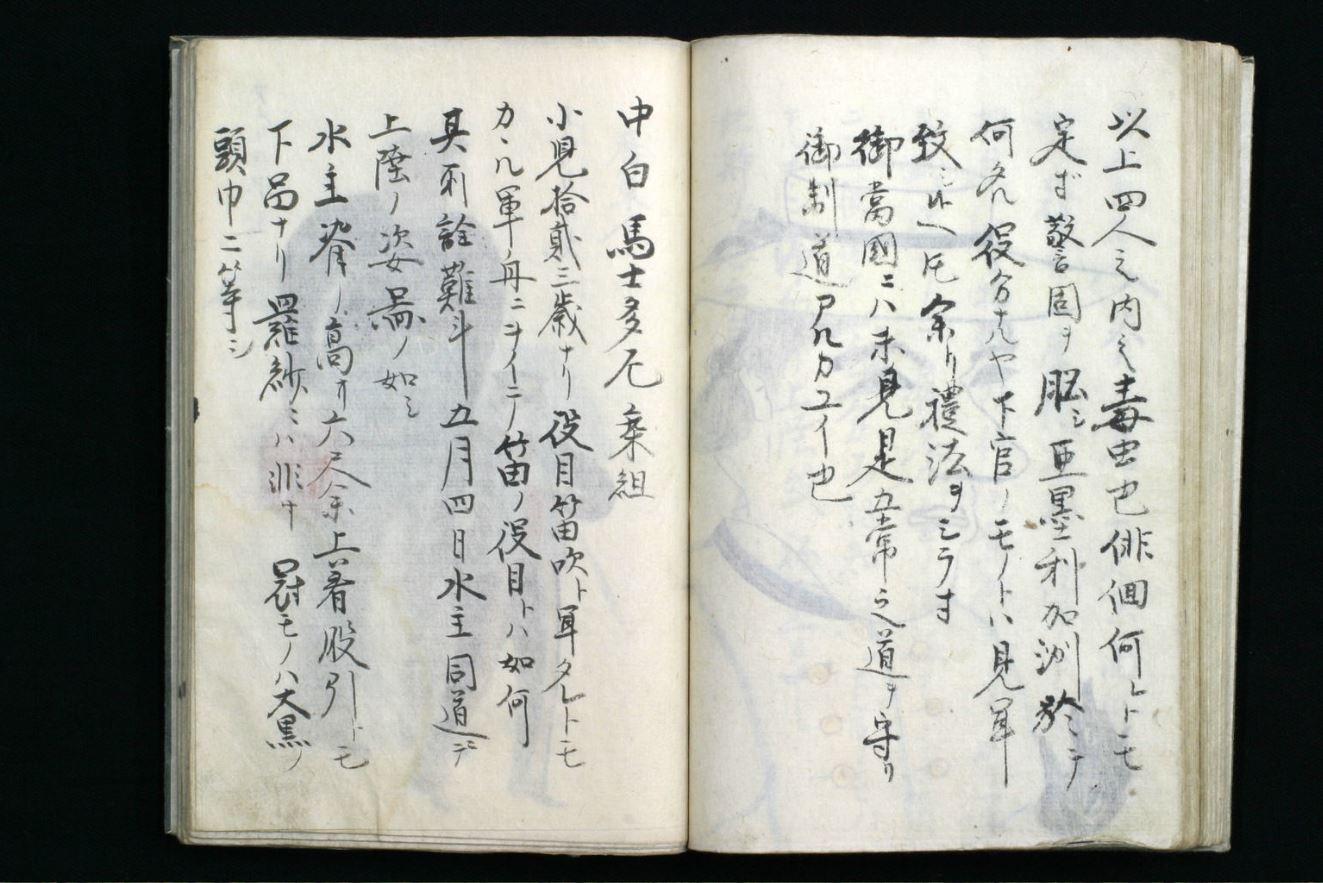 以上四人之内之毒虫也俳佪何レトモ
定ズ警固ヲ脳シ亜墨利加洲於ヽテ
何タル役分ナルヤ下官ノモノトハ見
致シ 余リ禮法ヲシラす
御當國ニハ未見是五常之道ヲ守リ
御制道アルカユイ也
中白馬士多尼乗組
小児拾貳三歳ナリ役目笛吹ト タレトモ
カヽル軍舟ニヲイテノ笛ノ役目トハ如何
其所詮難斗 五月四日水主同道ニテ
上陸ノ姿 ノ如シ
水主脊ノ高サ六尺余上着股引トモ
下品ナリ羅紗ニハ非す 冠モノハ大黒ノ
頭巾ニ等シ